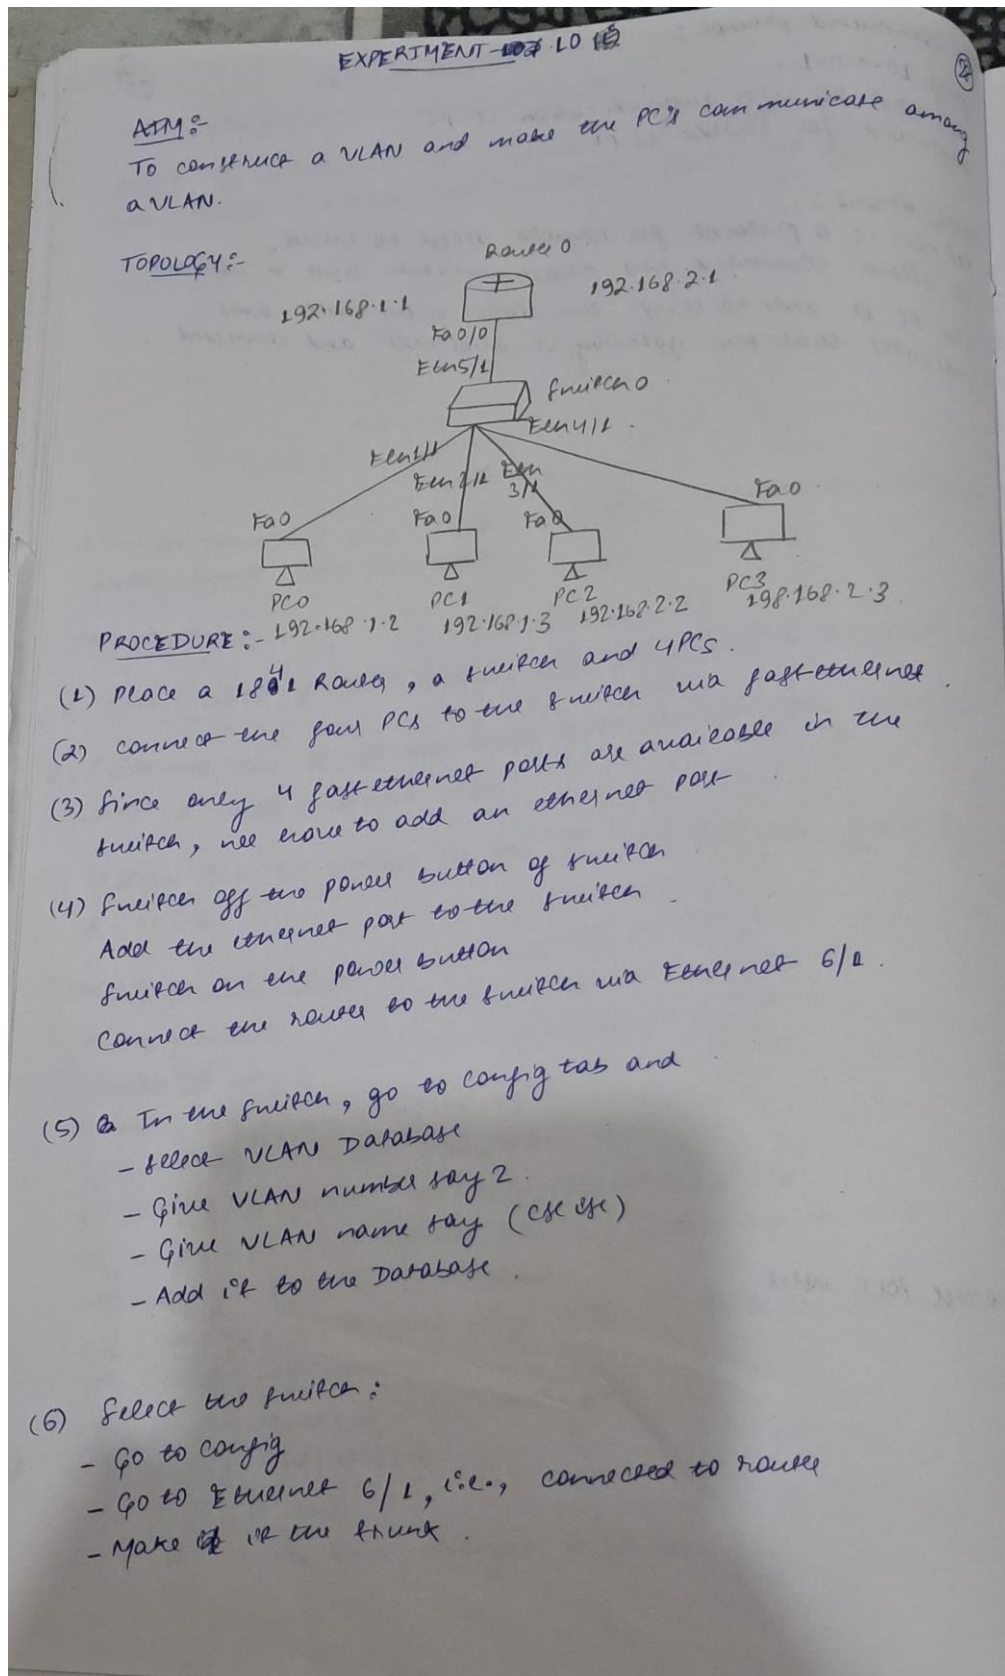 EXPERIMENT - 10
2
AIM:-
To construct a VLAN and make the PC's communicate among
a VLAN.
TOPOLOGY:-
Router 0
192.168.1.1
192.168.2.1
Fa0/0
Eth5/1
Switch 0
Eth4/1
Eth1/1
Eth2/1
Eth
3/1
Fa0
Fa0
Fa0
Fa0
PC0
PC1
PC2
PC3
192.168.1.2
192.168.1.3
192.168.2.2
198.168.2.3
PROCEDURE:-
(1) Place a 1841 Router, a switch and 4PCs.
(2) connect the four PCs to the switch via fastethernet.
(3) Since only 4 fastethernet ports are available in the
switch, we have to add an ethernet port
(4) Switch off the power button of switch
Add the ethernet port to the switch.
Switch on the power button
Connect the router to the switch via Ethernet 6/1.
(5) In the switch, go to config tab and
- select VLAN Database
- Give VLAN number say 2.
- Give VLAN name say
- Add it to the Database.
(6) Select the switch:
- Go to config
- Go to Ethernet 6/1, i.e., connected to router
- Make it the trunk.